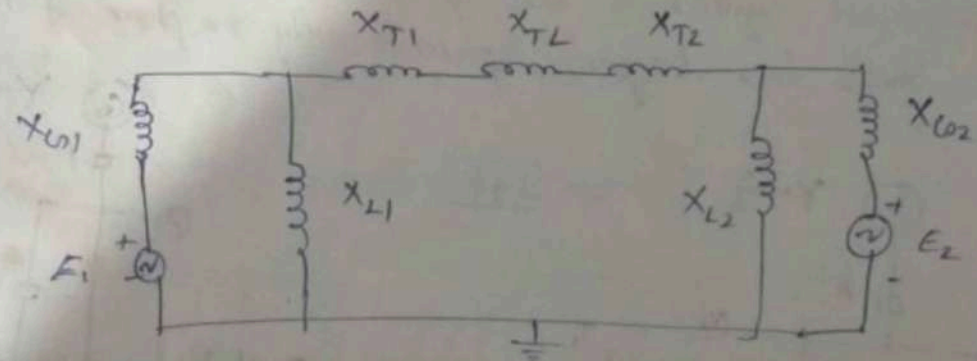 X_T1 X_TL X_T2
X_G1 X_L1 X_L2 X_G2
+ +
E_1 E_2
- -